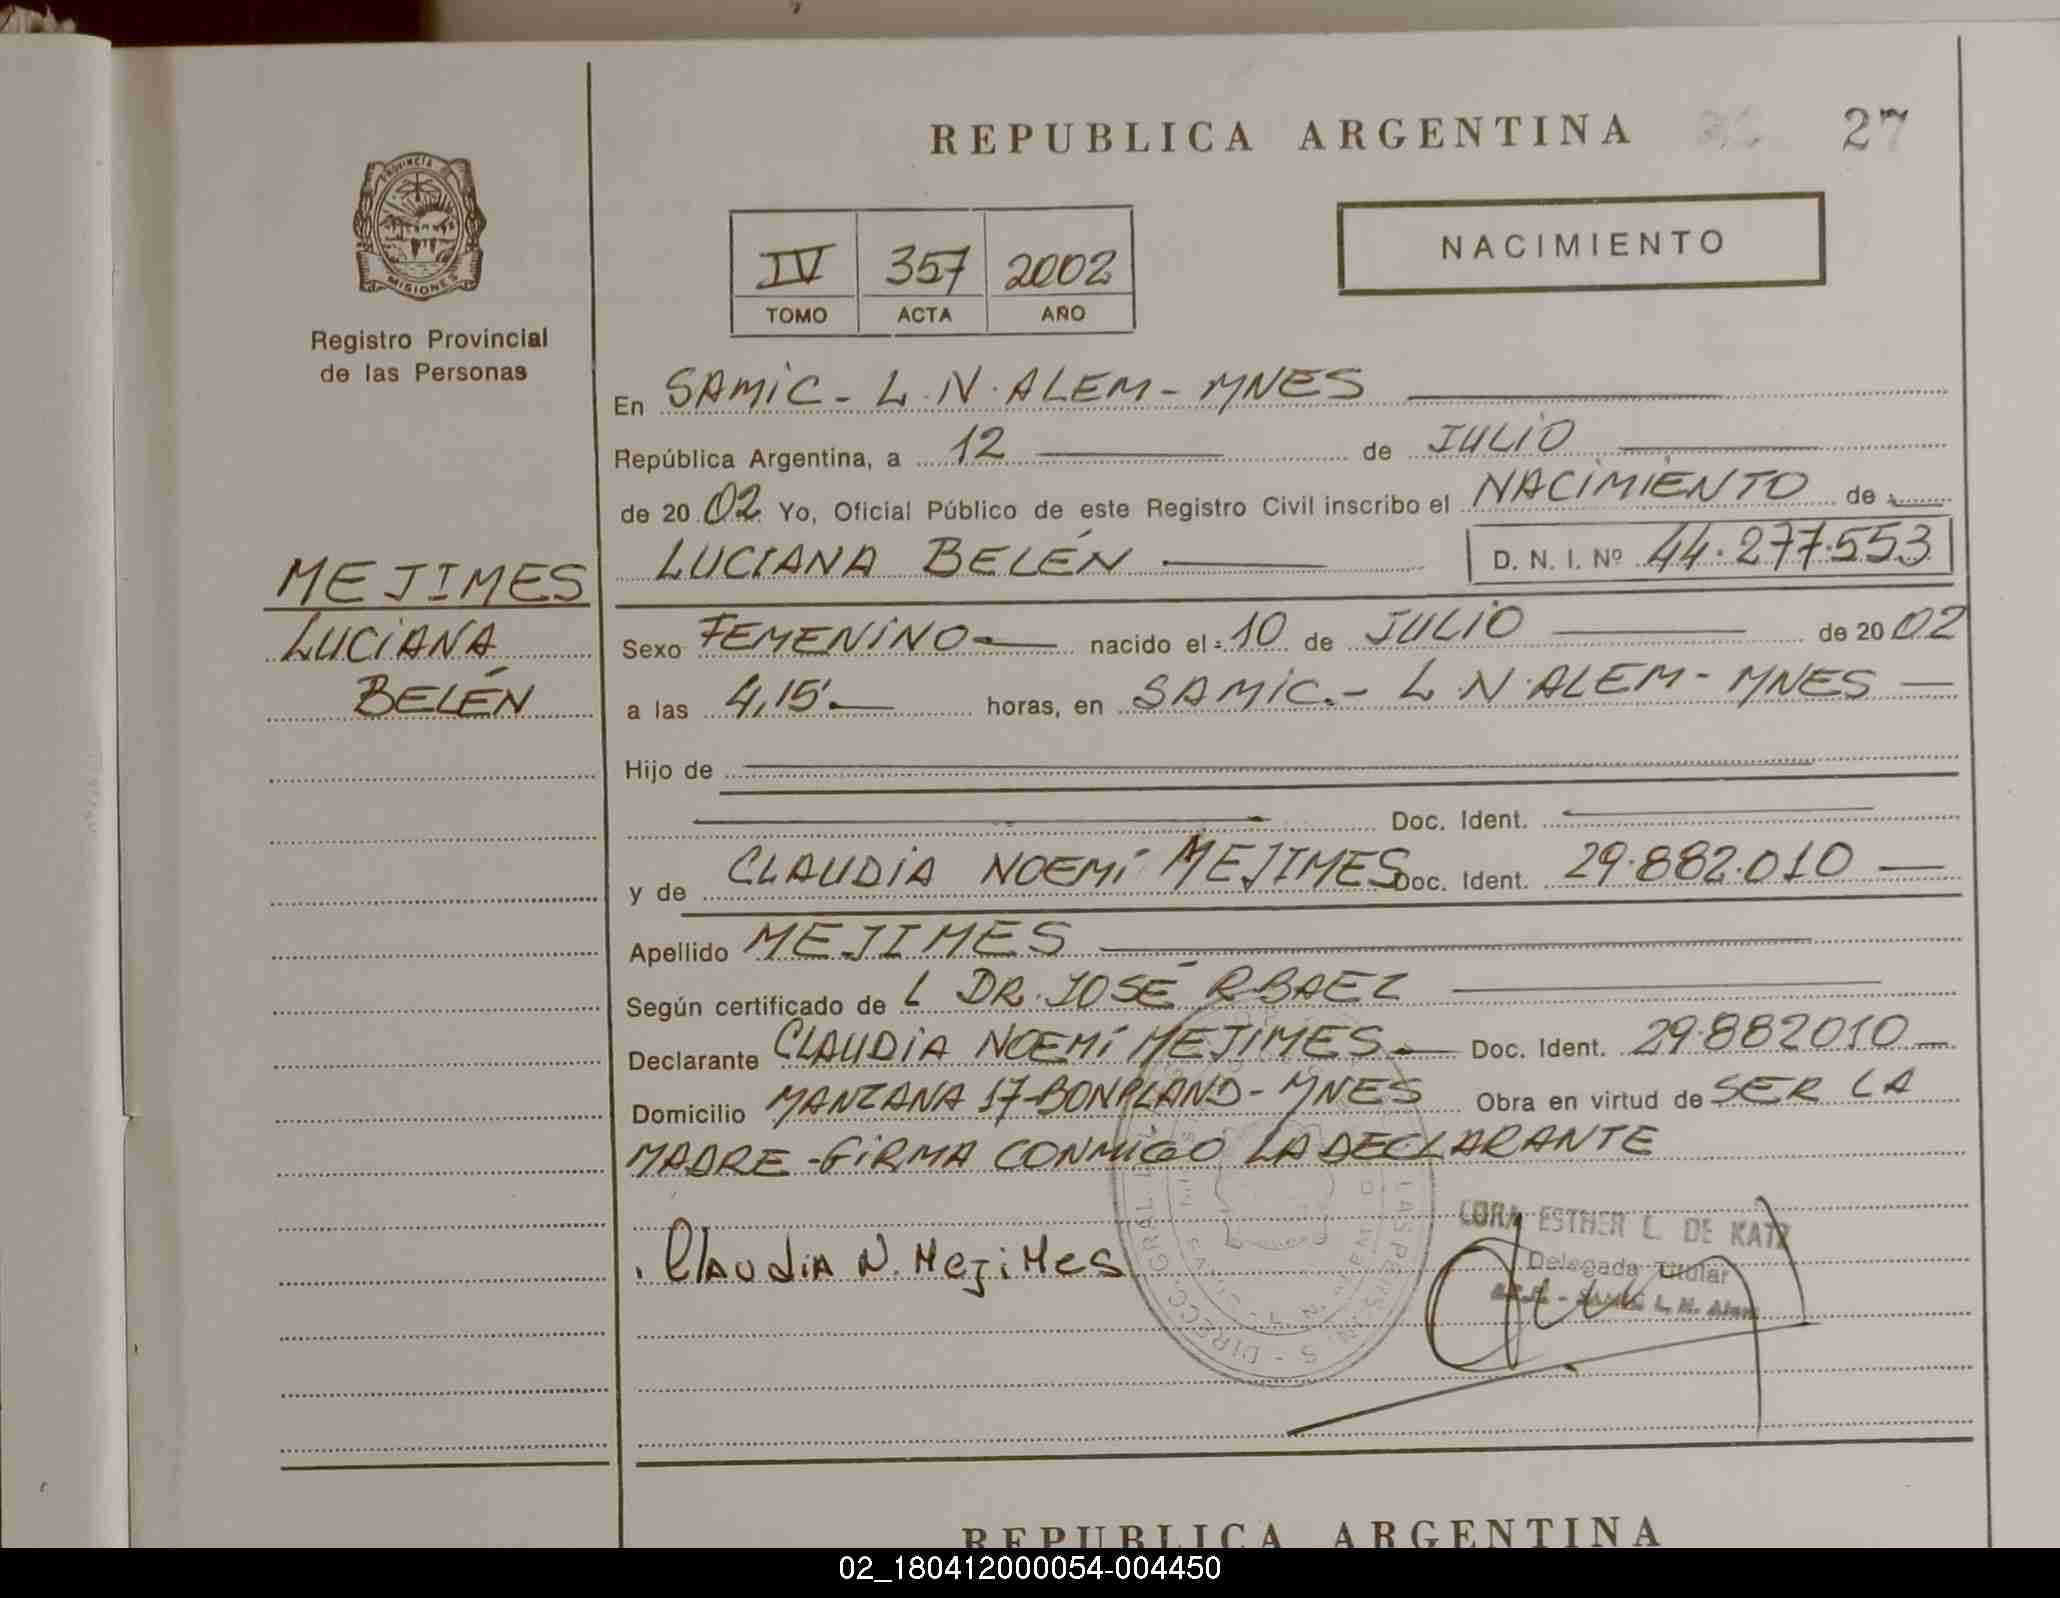 REPUBLICA ARGENTINA 27
PROVINCIA DE
MISIONES
Registro Provincial
de las Personas
NACIMIENTO
IV 357 2002
TOMO ACTA AÑO
En SAMIC - L.N. ALEM - MNES
República Argentina, a 12 de JULIO
de 2002 Yo, Oficial Público de este Registro Civil inscribo el NACIMIENTO de
LUCIANA BELÉN D. N. I. Nº 44.277.553
MEJIMES
LUCIANA
BELÉN
Sexo FEMENINO nacido el 10 de JULIO de 2002
a las 4,15' horas, en SAMIC. - L N. ALEM - MNES
Hijo de
Doc. Ident.
y de CLAUDIA NOEMÍ MEJIMES Doc. Ident. 29.882.010
Apellido MEJIMES
Según certificado de L DR. JOSÉ R BAEZ
Declarante CLAUDIA NOEMÍ MEJIMES Doc. Ident. 29.882010
Domicilio MANZANA 17-BONPLAND - MNES Obra en virtud de SER LA
MADRE - FIRMA CONMIGO LA DECLARANTE
Claudia N. Mejimes
CORA ESTHER L. DE KATZ
Delegada Titular
SAMIC L. N. Alem
REPUBLICA ARGENTINA
02_180412000054-004450